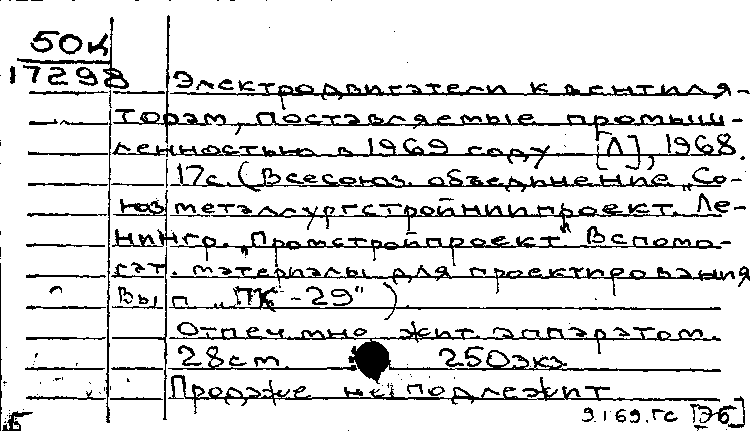 50к
17298
Электродвигатели к вентиля-
торам, поставляемые промыш-
ленностью в 1969 году [Л], 1968.
17с. (Всесоюз. объединение „Со-
юзметаллургстройниипроект. Ле-
нингр. „Промстройпроект" Вспомо-
гат. материалы для проектирования
Вып „ПК-29").
Отпеч. мно жит. аппаратом.
28см. 250экз
Продаже не подлежит
9.169.гс [Эб]
Б